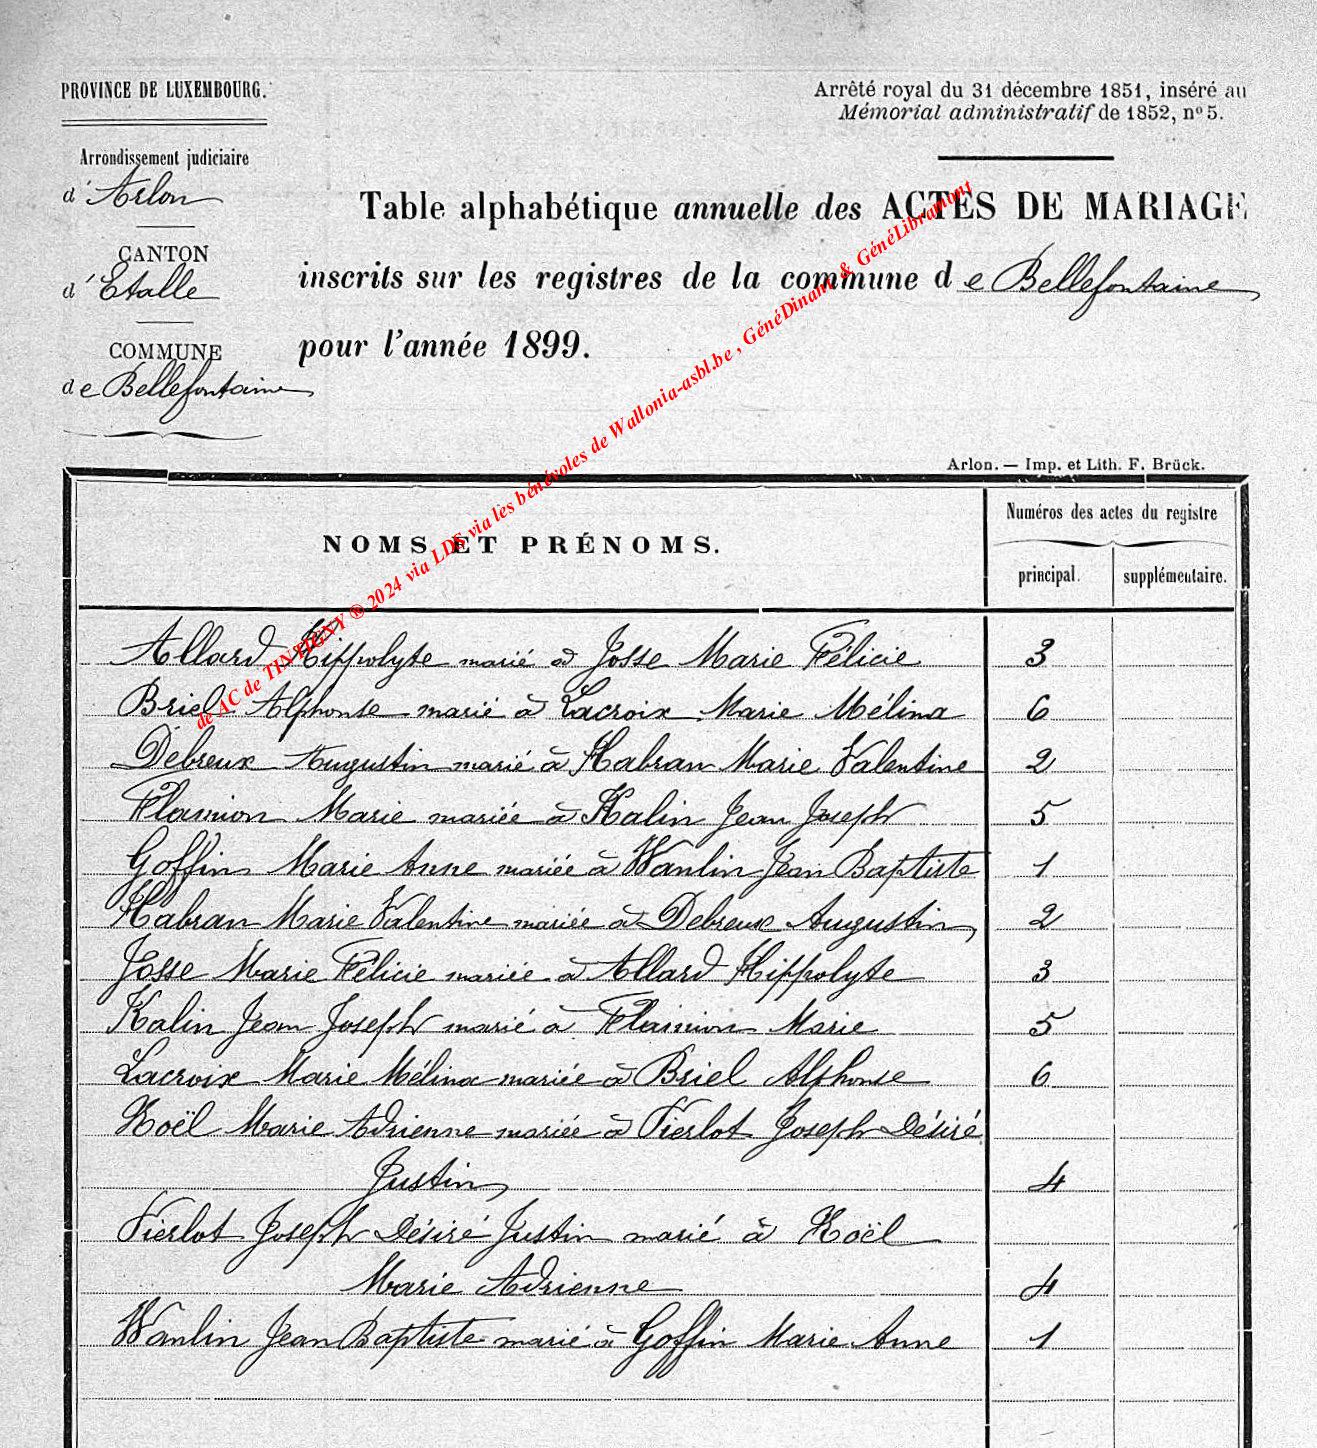 PROVINCE DE LUXEMBOURG.
Arrêté royal du 31 décembre 1851, inséré au
Mémorial administratif de 1852, nº 5.
Arrondissement judiciaire
d'Arlon
CANTON
d'Etalle
COMMUNE
de Bellefontaine
Table alphabétique annuelle des ACTES DE MARIAGE
inscrits sur les registres de la commune de Bellefontaine
pour l'année 1899.
de AC de TINTIGNY ® 2024 via LDS via les bénévoles de Wallonia-asbl.be , GénéDinant & GénéLibramont
Arlon. — Imp. et Lith. F. Brück.
NOMS ET PRÉNOMS.
Numéros des actes du registre
principal.
supplémentaire.
Allard Hippolyte marié à Josse Marie Félicie 3
Briel Alphonse marié à Lacroix Marie Mélina 6
Debreux Augustin marié à Habran Marie Valentine 2
Flamion Marie mariée à Kalin Jean Joseph 5
Goffin Marie Anne mariée à Wanlin Jean Baptiste 1
Habran Marie Valentine mariée à Debreux Augustin 2
Josse Marie Félicie mariée à Allard Hippolyte 3
Kalin Jean Joseph marié à Flamion Marie 5
Lacroix Marie Mélina mariée à Briel Alphonse 6
Noël Marie Adrienne mariée à Pierlot Joseph Désiré
Justin 4
Pierlot Joseph Désiré Justin marié à Noël
Marie Adrienne 4
Wanlin Jean Baptiste marié à Goffin Marie Anne 1